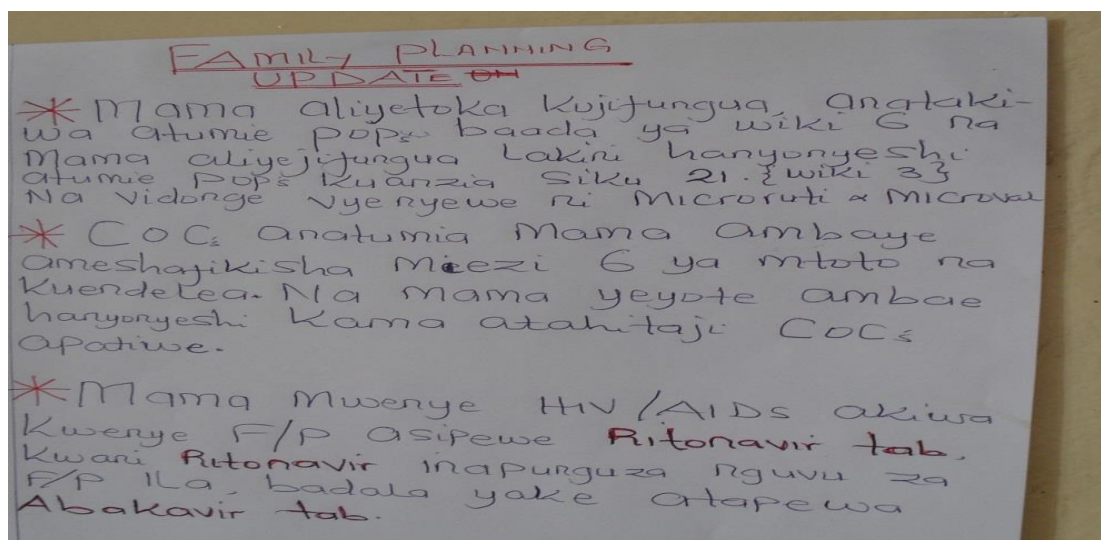 FAMILY PLANNING
UPDATE ON
* Mama aliyetoka Kujifungua, anataki-
wa atumie pops baada ya wiki 6 na
Mama aliyejifungua Lakini hanyonyeshi
atumie Pops Kuanzia Siku 21. {wiki 3}
Na Vidonge vyenyewe ni Microruti & Microval
* COCs anatumia Mama ambaye
ameshafikisha Miezi 6 ya mtoto na
Kuendelea. Na mama yeyote ambae
hanyonyeshi Kama atahitaji COCs
apatiwe.
* Mama Mwenye HIV/AIDs akiwa
Kwenye F/P asipewe Ritonavir tab.
Kwani Ritonavir inapunguza nguvu za
F/P ILa, badala yake atapewa
Abakavir tab.